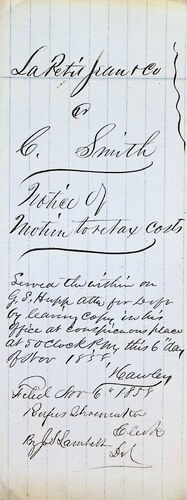 La Petit Jean & Co
vs
C. Smith
Notice of
Motion to retax costs
Served the within on
G. S. Hupp atty for Deft
by leaving copy in his
office at conspicuous place
at 5 o clock P.M. this 6" day
of Nov 1858
Hawley
Filed Nov 6" 1858
Rufus Shoemaker
Clerk
By J. S. Lambert